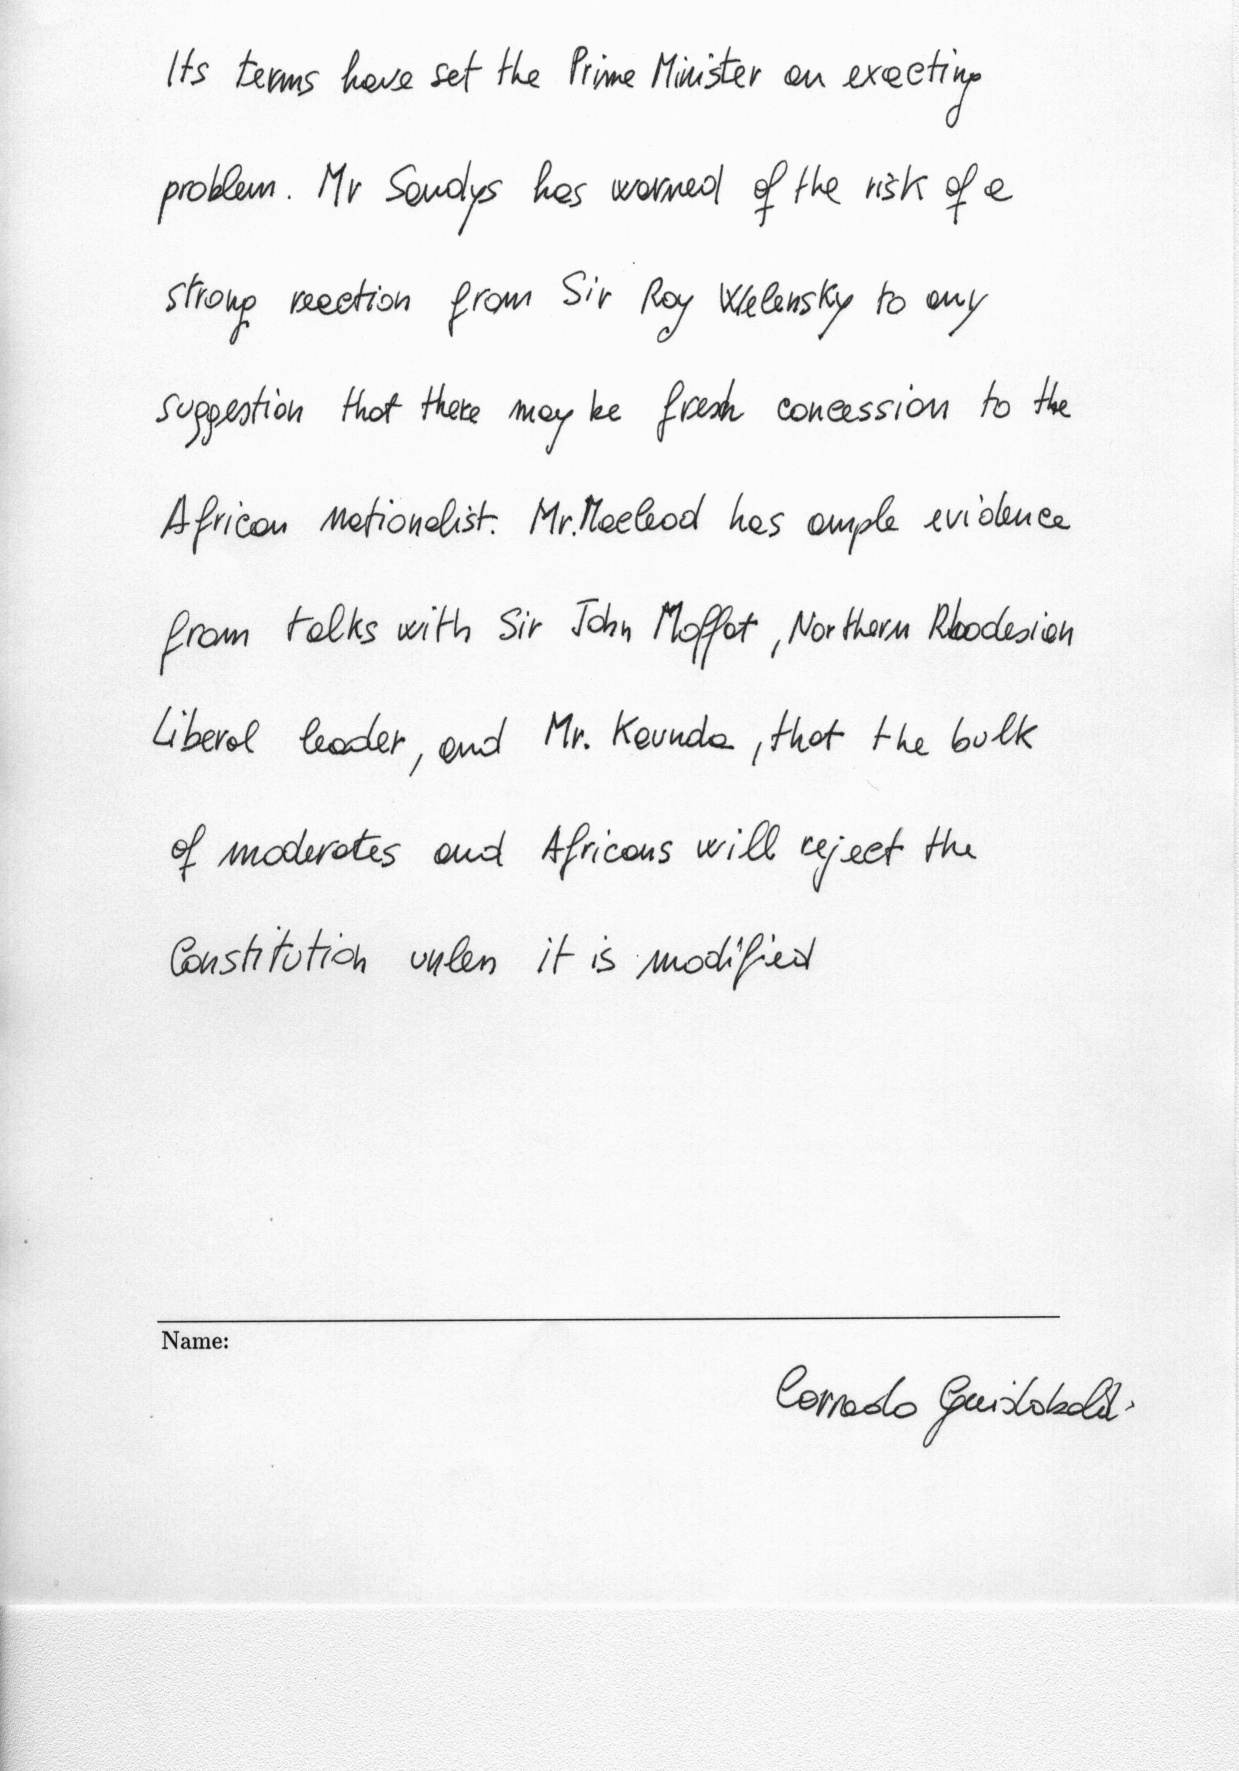 Its terms have set the Prime Minister an exacting
problem. Mr Sandys has warned of the risk of a
strong reaction from Sir Roy Welensky to any
suggestion that there may be fresh concession to the
African nationalist. Mr. Macleod has ample evidence
from talks with Sir John Moffat, Northern Rhodesian
Liberal leader, and Mr. Kaunda, that the bulk
of moderates and Africans will reject the
Constitution unless it is modified
Name:
Corrado Guidobaldi